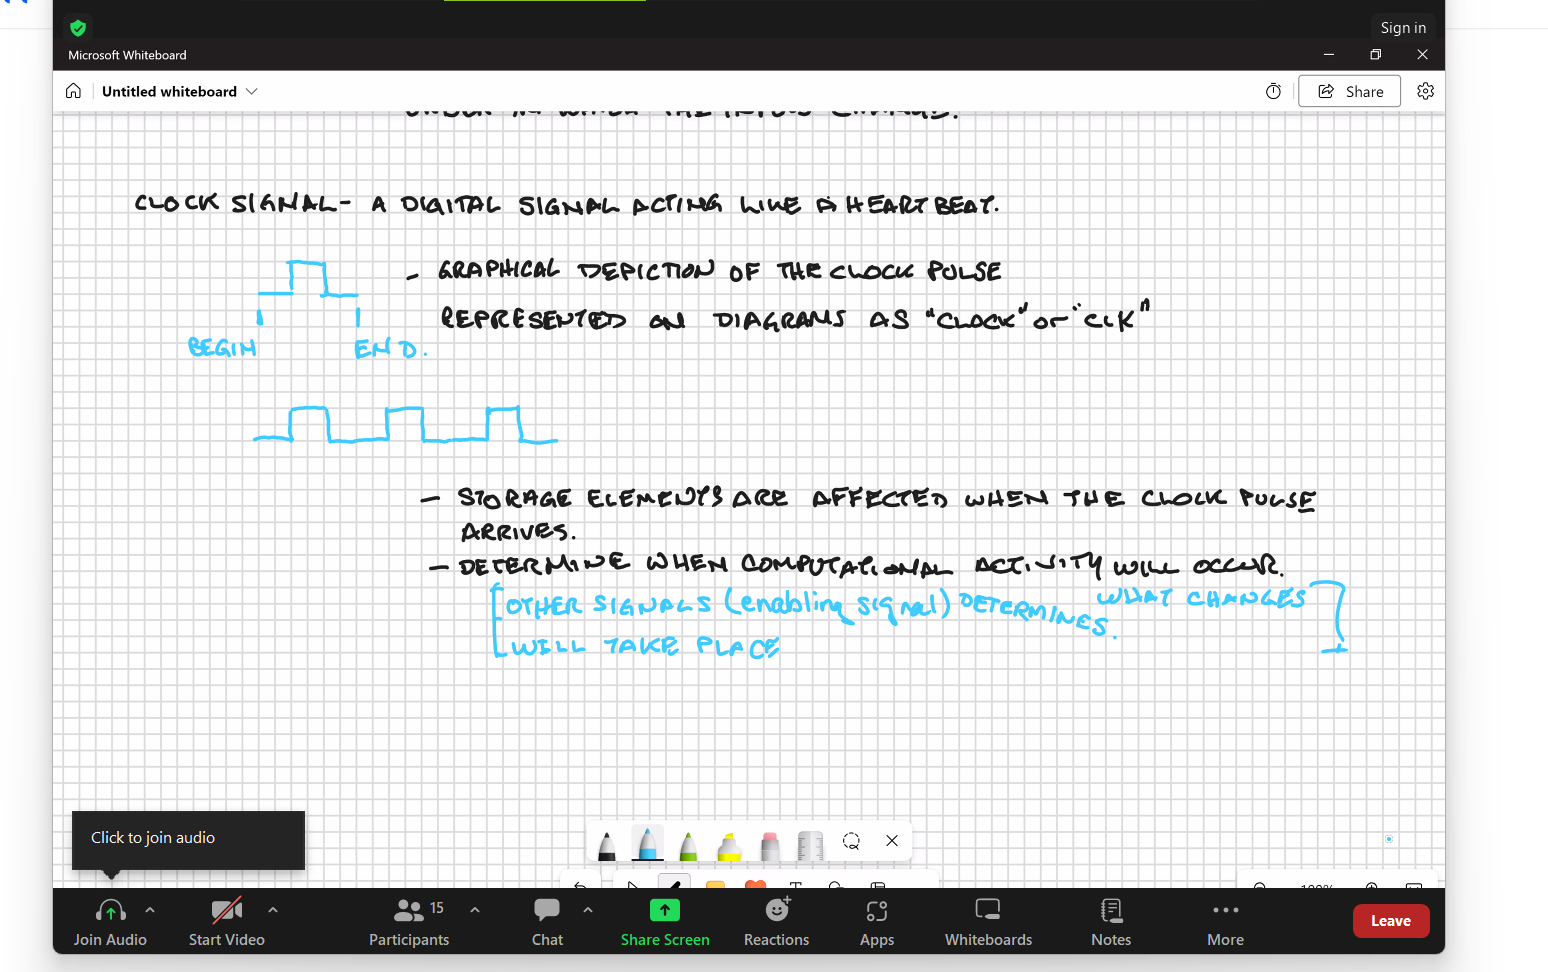 Sign in
Microsoft Whiteboard
Untitled whiteboard
Share
ORDER IN WHICH THE INPUTS CHANGE.
CLOCK SIGNAL - A DIGITAL SIGNAL ACTING LIKE A HEARTBEAT.
- GRAPHICAL DEPICTION OF THE CLOCK PULSE
REPRESENTED ON DIAGRAMS AS "CLOCK" or "CLK"
BEGIN END.
- STORAGE ELEMENTS ARE AFFECTED WHEN THE CLOCK PULSE
ARRIVES.
- DETERMINE WHEN COMPUTATIONAL ACTIVITY WILL OCCUR.
[OTHER SIGNALS (enabling signal) DETERMINES. WHAT CHANGES
WILL TAKE PLACE]
Click to join audio
100%
15
Join Audio
Start Video
Participants
Chat
Share Screen
Reactions
Apps
Whiteboards
Notes
More
Leave